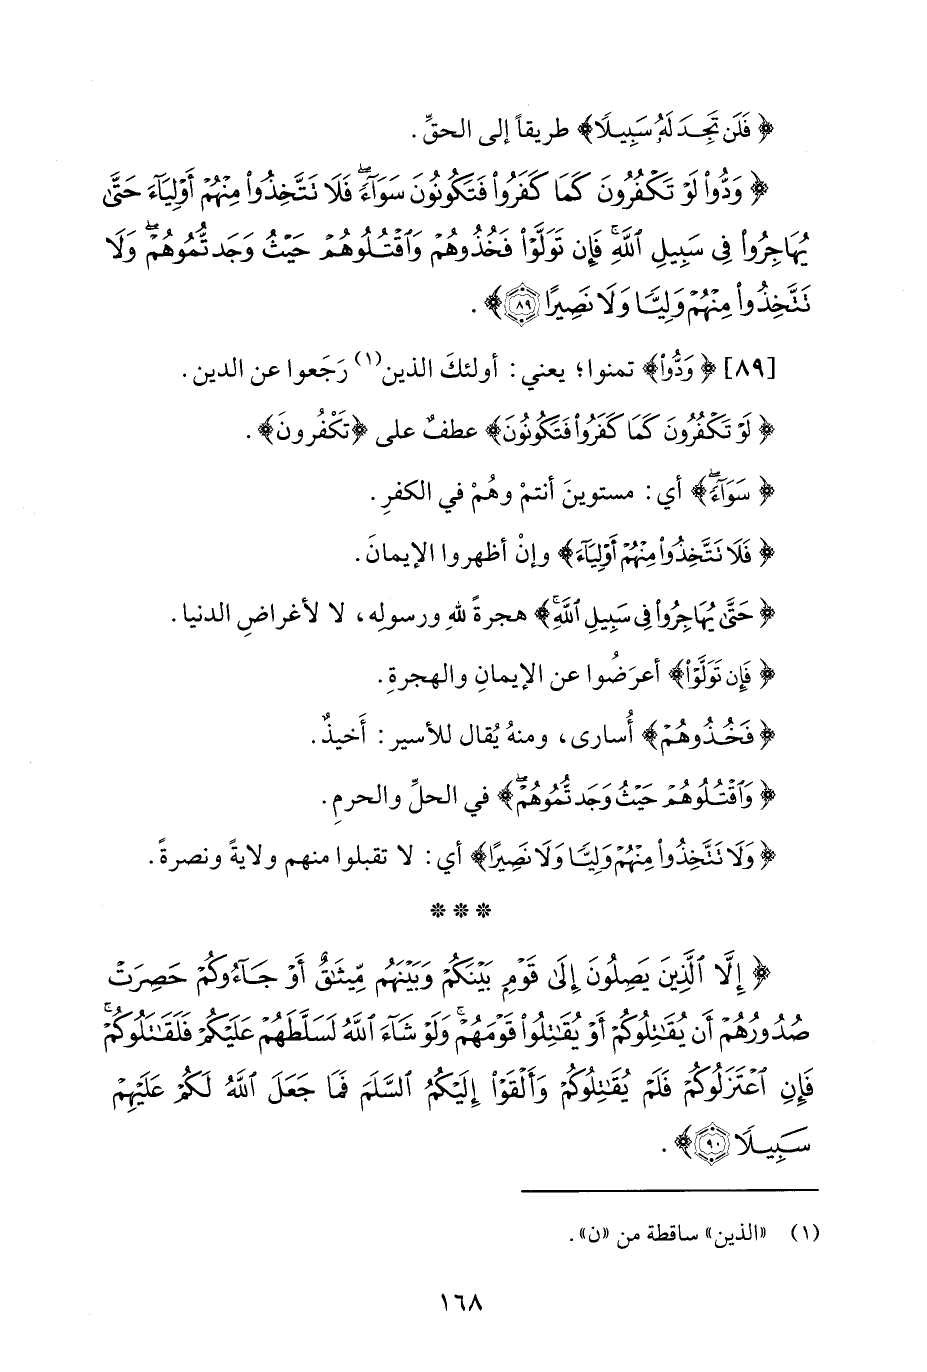 ﴿فَلَن تَجِدَ لَهُۥ سَبِيلًا﴾ طريقاً إلى الحقِّ.
﴿وَدُّوا۟ لَوْ تَكْفُرُونَ كَمَا كَفَرُوا۟ فَتَكُونُونَ سَوَآءًۖ فَلَا تَتَّخِذُوا۟ مِنْهُمْ أَوْلِيَآءَ حَتَّىٰ
يُهَاجِرُوا۟ فِى سَبِيلِ ٱللَّهِۚ فَإِن تَوَلَّوْا۟ فَخُذُوهُمْ وَٱقْتُلُوهُمْ حَيْثُ وَجَدتُّمُوهُمْۖ وَلَا
تَتَّخِذُوا۟ مِنْهُمْ وَلِيًّا وَلَا نَصِيرًا ٨٩﴾.
[٨٩] ﴿وَدُّوا۟﴾ تمنوا؛ يعني: أولئكَ الذين(١) رَجَعوا عن الدين.
﴿لَوْ تَكْفُرُونَ كَمَا كَفَرُوا۟ فَتَكُونُونَ﴾ عطفٌ على ﴿تَكْفُرونَ﴾.
﴿سَوَآءًۖ﴾ أي: مستوينَ أنتمْ وهُمْ في الكفرِ.
﴿فَلَا تَتَّخِذُوا۟ مِنْهُمْ أَوْلِيَآءَ﴾ وإنْ أظهروا الإيمانَ.
﴿حَتَّىٰ يُهَاجِرُوا۟ فِى سَبِيلِ ٱللَّهِۚ﴾ هجرةً للهِ ورسولِه، لا لأغراضِ الدنيا.
﴿فَإِن تَوَلَّوْا۟﴾ أعرَضُوا عن الإيمانِ والهجرةِ.
﴿فَخُذُوهُمْ﴾ أُسارى، ومنهُ يُقال للأسير: أَخيذٌ.
﴿وَٱقْتُلُوهُمْ حَيْثُ وَجَدتُّمُوهُمْۖ﴾ في الحلِّ والحرمِ.
﴿وَلَا تَتَّخِذُوا۟ مِنْهُمْ وَلِيًّا وَلَا نَصِيرًا﴾ أي: لا تقبلوا منهم ولايةً ونصرةً.
* * *
﴿إِلَّا ٱلَّذِينَ يَصِلُونَ إِلَىٰ قَوْمٍۭ بَيْنَكُمْ وَبَيْنَهُم مِّيثَٰقٌ أَوْ جَآءُوكُمْ حَصِرَتْ
صُدُورُهُمْ أَن يُقَٰتِلُوكُمْ أَوْ يُقَٰتِلُوا۟ قَوْمَهُمْۚ وَلَوْ شَآءَ ٱللَّهُ لَسَلَّطَهُمْ عَلَيْكُمْ فَلَقَٰتَلُوكُمْۚ
فَإِنِ ٱعْتَزَلُوكُمْ فَلَمْ يُقَٰتِلُوكُمْ وَأَلْقَوْا۟ إِلَيْكُمُ ٱلسَّلَمَ فَمَا جَعَلَ ٱللَّهُ لَكُمْ عَلَيْهِمْ
سَبِيلًا ٩٠﴾.
(١) «الذين» ساقطة من «ن».
١٦٨